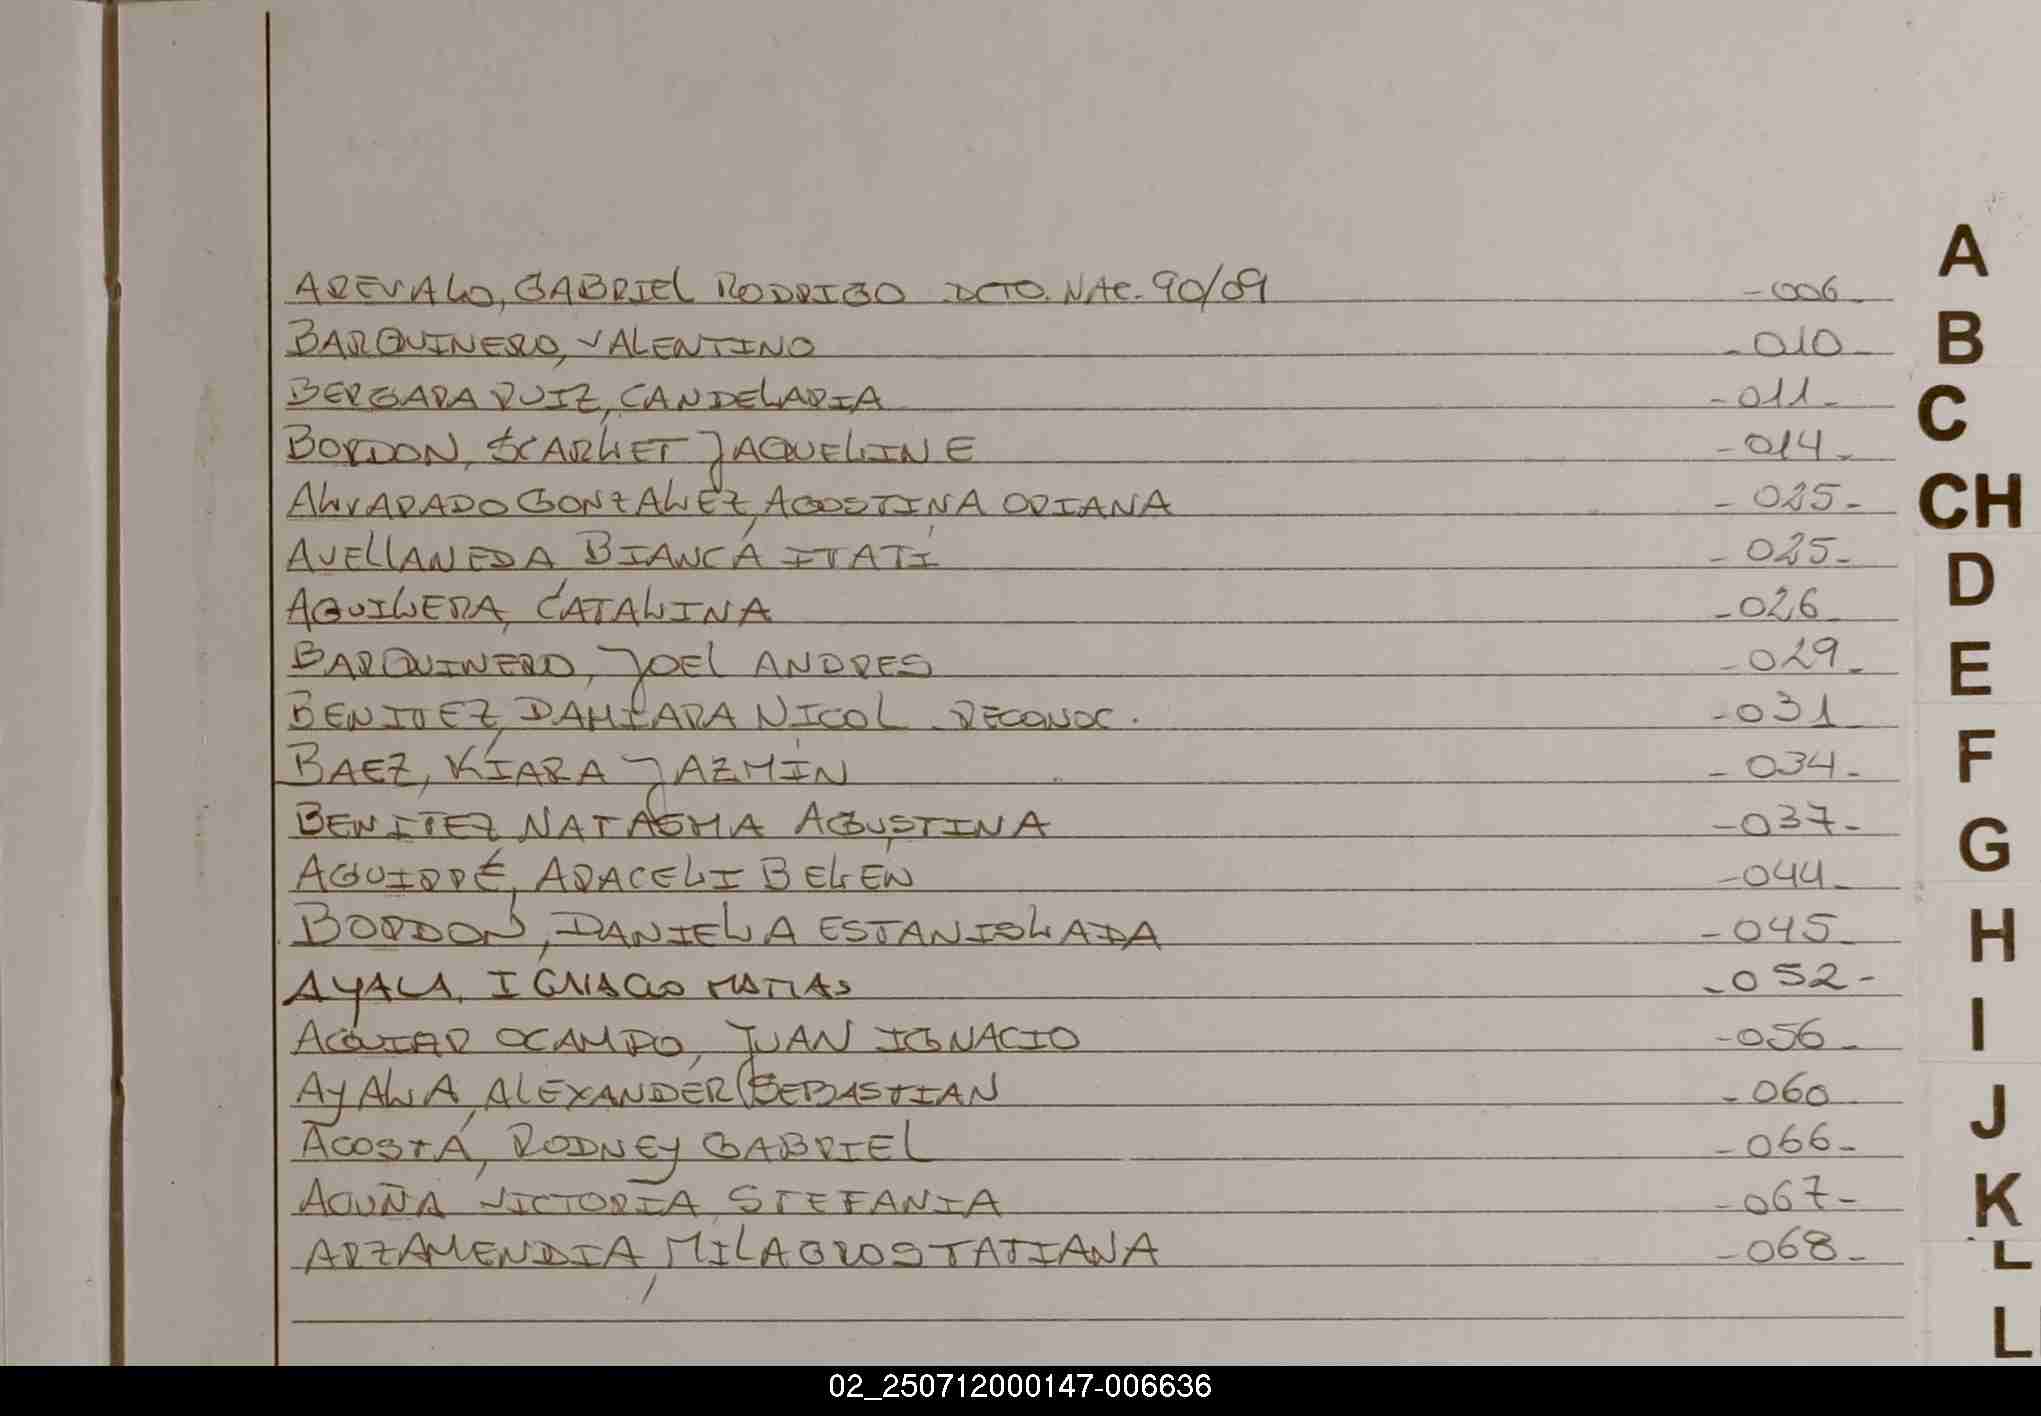 AREVALO, GABRIEL RODRIGO DCTO. NAC. 90/09 -006-
BARQUINERO, VALENTINO -010-
BERGARA RUIZ, CANDELARIA -011-
BORDON, SCARLET JAQUELINE -014-
ALVARADO GONZALEZ, AGOSTINA ORIANA -025-
AVELLANEDA BIANCA ITATÍ -025-
AGUILERA, CATALINA -026-
BARQUINERO, JOEL ANDRES -029-
BENITEZ, DAMIARA NICOL RECONOC. -031-
BAEZ, KIARA JAZMÍN -034-
BENITEZ NATASHA AGUSTINA -037-
AGUIRRE, ARACELI BELEN -044-
BORDON, DANIELA ESTANISLADA -045-
AYALA, IGNACIO MATIAS -052-
AGUIAR OCAMPO, JUAN IGNACIO -056-
AYALA, ALEXANDER SEBASTIAN -060-
ACOSTA, RODNEY GABRIEL -066-
ACUÑA VICTORIA STEFANIA -067-
ARZAMENDIA, MILAGROS TATIANA -068-
A
B
C
CH
D
E
F
G
H
I
J
K
L
L
02_250712000147-006636